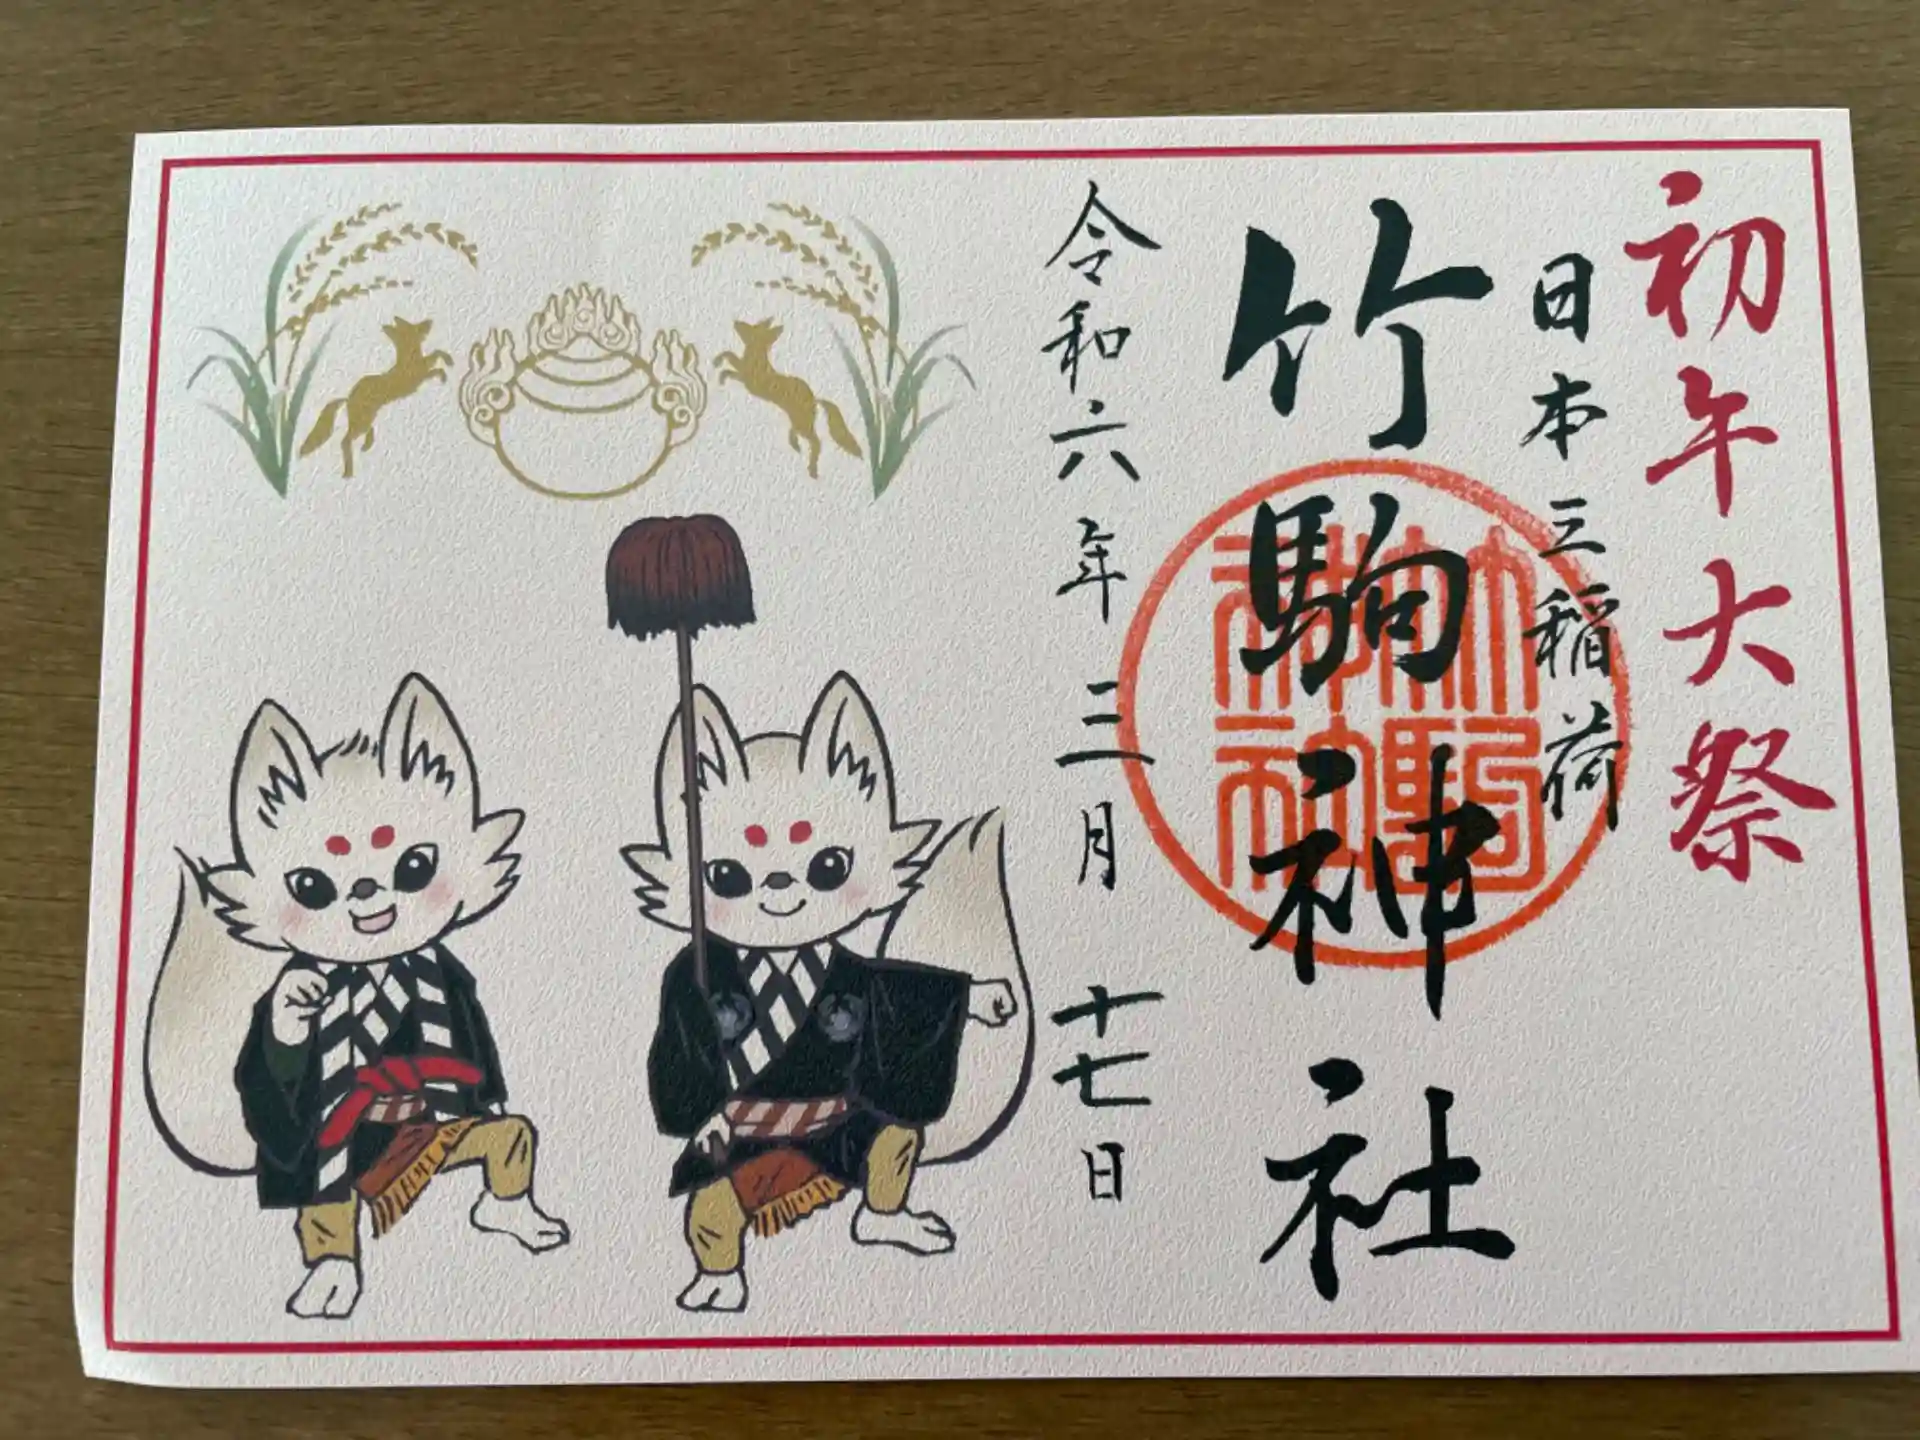 初午大祭
日本三稲荷
竹駒神社
竹駒神社
令和六年三月十七日